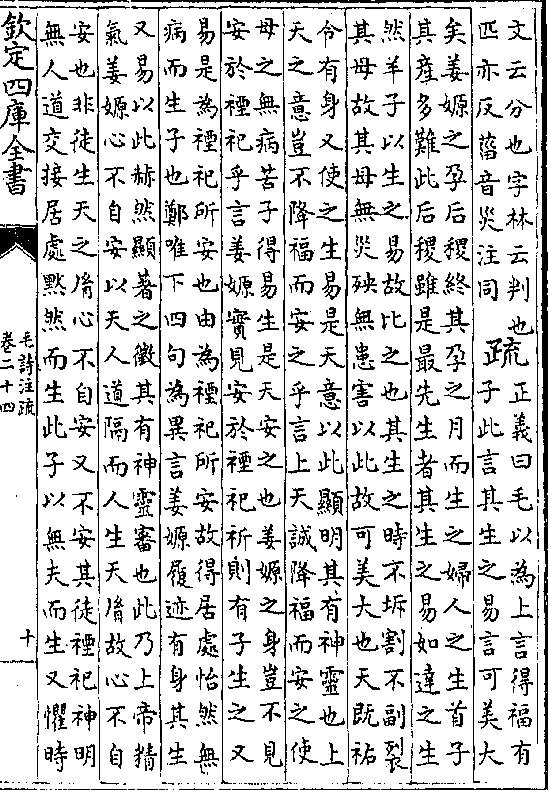 文云分也字林云判也
匹亦反菑音災注同
疏
正義曰毛以為上言得福有
子此言其生之易言可美大
矣姜嫄之孕后稷終其孕之月而生之婦人之生首子
其產多難此后稷雖是最先生者其生之易如達之生
然羊子以生之易故比之也其生之時不坼割不副裂
其母故其母無災殃無患害以此故可美大也天既祐
令有身又使之生易是天意以此顯明其有神靈也上
天之意豈不降福而安之乎言上天誠降福而安之使
母之無病苦子得易生是天安之也姜嫄之身豈不見
安於禋祀乎言姜嫄實見安於禋祀祈則有子生之又
易是為禋祀所安也由為禋祀所安故得居處怡然無
病而生子也鄭唯下四句為異言姜嫄履迹有身其生
又易以此赫然顯著之徵其有神靈審也此乃上帝精
氣姜嫄心不自安以天人道隔而人生天胤故心不自
安也非徒生天之胤心不自安又不安其徒禋祀神明
無人道交接居處默然而生此子以無夫而生又懼時
欽定四庫全書
毛詩注疏
卷二十四
十